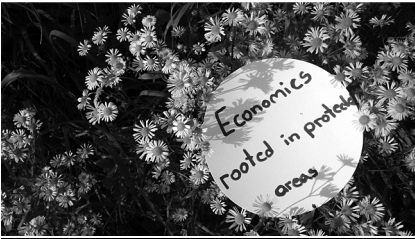 Economics
rooted in protected
areas